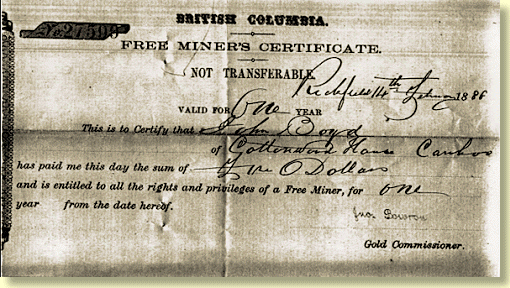 BRITISH COLUMBIA.
FREE MINER'S CERTIFICATE.
NOT TRANSFERABLE.
Richfield 14th February 1886
VALID FOR One YEAR
This is to Certify that John Boyd
of Cottonwood House Cariboo
has paid me this day the sum of Five 0 Dollars
and is entitled to all the rights and privileges of a Free Miner, for one
year from the date hereof.
Jno. Bowron
Gold Commissioner.